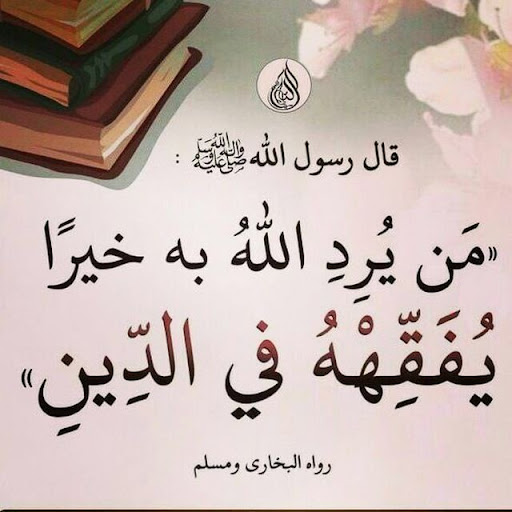 قال رسول الله ﷺ :
«مَن يُرِدِ اللهُ به خيرًا
يُفَقِّهْهُ في الدِّينِ»
رواه البخارى ومسلم